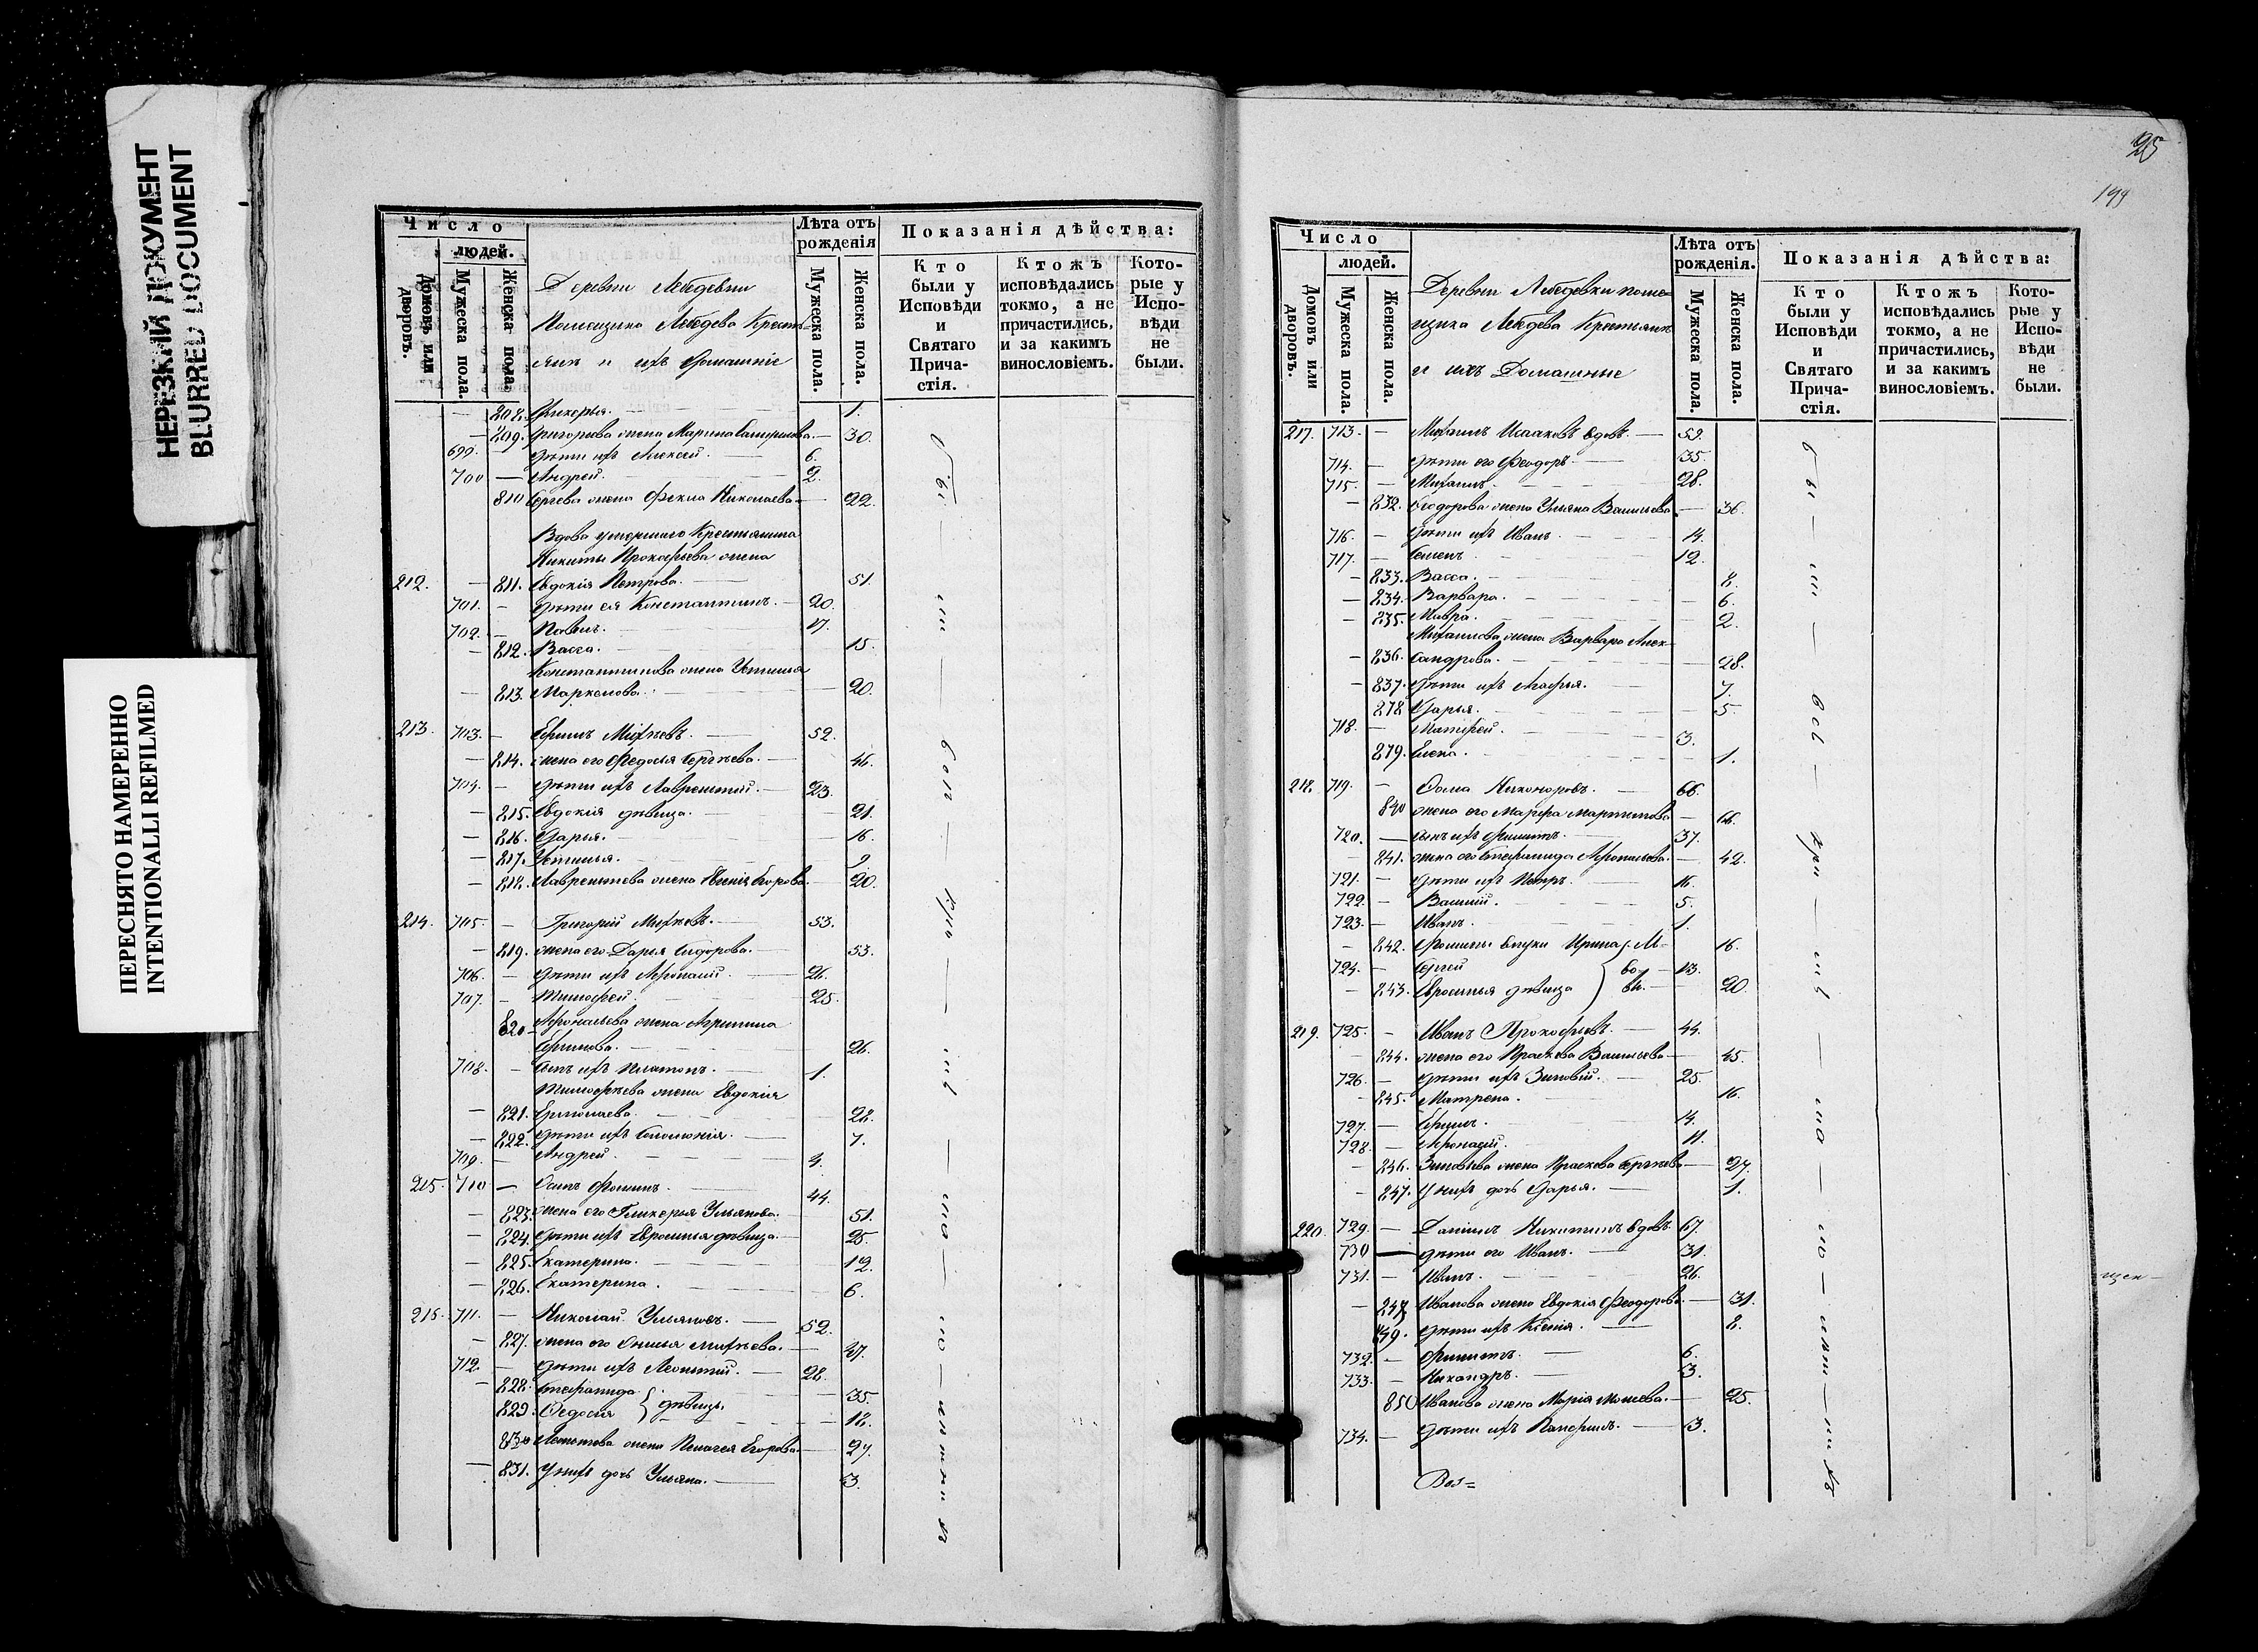 НЕРЕЗКИЙ ДОКУМЕНТ
BLURRED DOCUMENT
ПЕРЕСНЯТО НАМЕРЕННО
INTENTIONALLI REFILMED
Число
людей.
Домовъ или дворовъ.
Мужеска пола.
Женска пола.
Деревни Лебедевки
Помещика Лебедева Кресть-
янъ и ихъ Домашніе
Лѣта отъ рожденія
Мужеска пола.
Женска пола.
Показанія дѣйства:
Кто были у Исповѣди и Святаго Причастія.
Ктожъ исповѣдались токмо, а не причастились, и за какимъ винословіемъ.
Которые у Исповѣди не были.
— 808. Гликерья. 1.
— 809. Григорьева жена Марина 30.
699. дѣти ихъ Алексей. 6.
700 — Андрей. 2.
810 Сергѣева жена Фекла Николаева 22.
Вдова умершаго Крестьянина
Никиты Прокофьева жена
212. — 811. Евдокія Петрова. 51.
701. — дѣти ея Константинъ. 20.
702. — Павелъ. 17.
— 812. Васса. 15.
Константинова жена Устинья
— 813. Маркелова. 20.
213. 703. — Ефимъ Михѣевъ. 52.
— 814. жена его Федосья Сергѣева. 46.
704. — дѣти ихъ Лаврентий. 23.
— 815. Евдокія дѣвица. 21.
— 816. Дарья. 16.
— 817. Устинья. 9
— 818. Лаврентьева жена Егорова. 20.
214. 705. — Григорій Михѣевъ. 53.
— 819. жена его Дарья Сидорова. 53.
706. — дѣти ихъ Афонасий. 26.
707. — Тимофей. 25.
820 Афонасьева жена Агрипина
Ефимова. 26.
708. — сынъ ихъ Платонъ. 1.
Тимофѣева жена Евдокія
— 821. Ермолаева. 28.
— 822. дѣти ихъ Соломонія. 7.
709. — Андрей. 4.
215. 710 — Осипъ Фоминъ. 44.
— 823. жена его Гликерья Ульянова. 51.
— 824. дѣти ихъ Евросинья дѣвица. 25.
— 825. Екатерина. 12.
— 826. Екатерина. 6.
216. 711. — Николай Ульяновъ. 52.
— 827. жена его Михѣева. 47.
712. — дѣти ихъ Леонтий. 28.
— 828. Степанида 35.
829. Федосия } дѣвицы 18.
830 Леонтьева жена Пелагея Егорова. 27.
— 831. У нихъ дочь Ульяна. 3.
25
199
Число
людей.
Домовъ или дворовъ.
Мужеска пола.
Женска пола.
Деревни Лебедевки поме-
щика Лебедева Крестьянъ
и ихъ Домашные
Лѣта отъ рожденія.
Мужеска пола.
Женска пола.
Показанія дѣйства:
Кто были у Исповѣди и Святаго Причастія.
Ктожъ исповѣдались токмо, а не причастились, и за какимъ винословіемъ.
Которые у Исповѣди не были.
217. 713. — Михаилъ Исааковъ вдовъ. 59.
714. — дѣти его Феодоръ. 35.
715. — Михаилъ. 28.
— 832. Феодорова жена Ульяна Васильева 36.
716. — дѣти ихъ Иванъ. 14.
717. — Семенъ. 12.
— 833. Васса. 8.
— 834. Варвара. 6.
— 835. Мавра. 2.
Михаилова жена Варвара Алек-
— 836. сандрова. 28.
— 837. дѣти ихъ Агафья. 7.
878 Дарья. 5.
718. — Матфей. 3.
879. Елена. 1.
218. 719. — Фома Никоноровъ. 66.
840 жена его Марфа Мартинова 66.
720. — сынъ ихъ Филиппъ. 37.
— 841. жена его Степанида Афонасьева. 42.
721. — дѣти ихъ Петръ. 16.
722. — Василий. 5.
723. — Иванъ. 1.
— 842. Фомины внуки Ирина 16.
724. — Сергей 13.
— 843. Евросинья дѣвица 20.
219. 725. — Иванъ Прокофьевъ. 44.
— 844. жена его Праскева Васильева 45.
726. — дѣти ихъ Зиновій. 25.
— 845. Матрена. 16.
727. — Ефимъ. 14.
728. — Афонасий. 11.
— 846. Зиновьева жена Праскева Сергѣева 27.
— 847. У нихъ дочь Дарья. 1.
220. 729. — Даніилъ Никитинъ вдовъ 67.
730 — дѣти его Иванъ. 31.
731. — Иванъ. 26.
— 848 Иванова жена Евдокія Феодорова. 31.
849. дѣти ихъ Ксенія. 8.
732. — Филиппъ. 6.
733. — Никандръ. 3.
850 Иванова жена Марія Мосѣева. 25.
734. — дѣти ихъ Панфилъ. 3.
Воз=